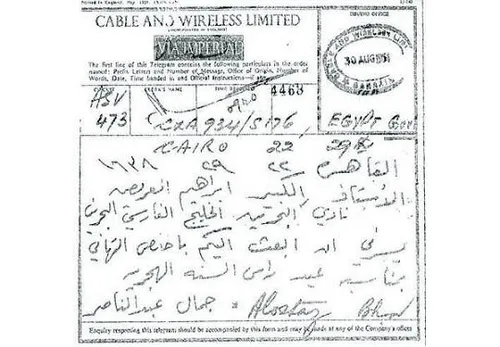 CABLE AND WIRELESS LIMITED
VIA IMPERIAL
The first line of this Telegram contains the following particulars in the order
named: Prefix Letters and Number of Message, Office of Origin, Number of
Words, Date, Time handed in and Official Instructions—if any.
CIRCUIT CLERK'S NAME TIME RECEIVED 4468
CABLE AND WIRELESS LIMITED
30 AUG 51
BAHRAIN
ASV
473 CXA934/S176 EGYPT Govt
CAIRO 22 29
القاهرة ٢٢ ٢٩ ١٦٣٨
الأستاذ الكبير ابراهيم العريض
نادي البحرين الخليج الفارسي البحرين
يسرني ان ابعث اليكم باخلص التهاني
بمناسبة عيد راس السنة الهجرية
جمال عبد الناصر
Enquiry respecting this telegram should be accompanied by this form and may be made at any of the Company's offices